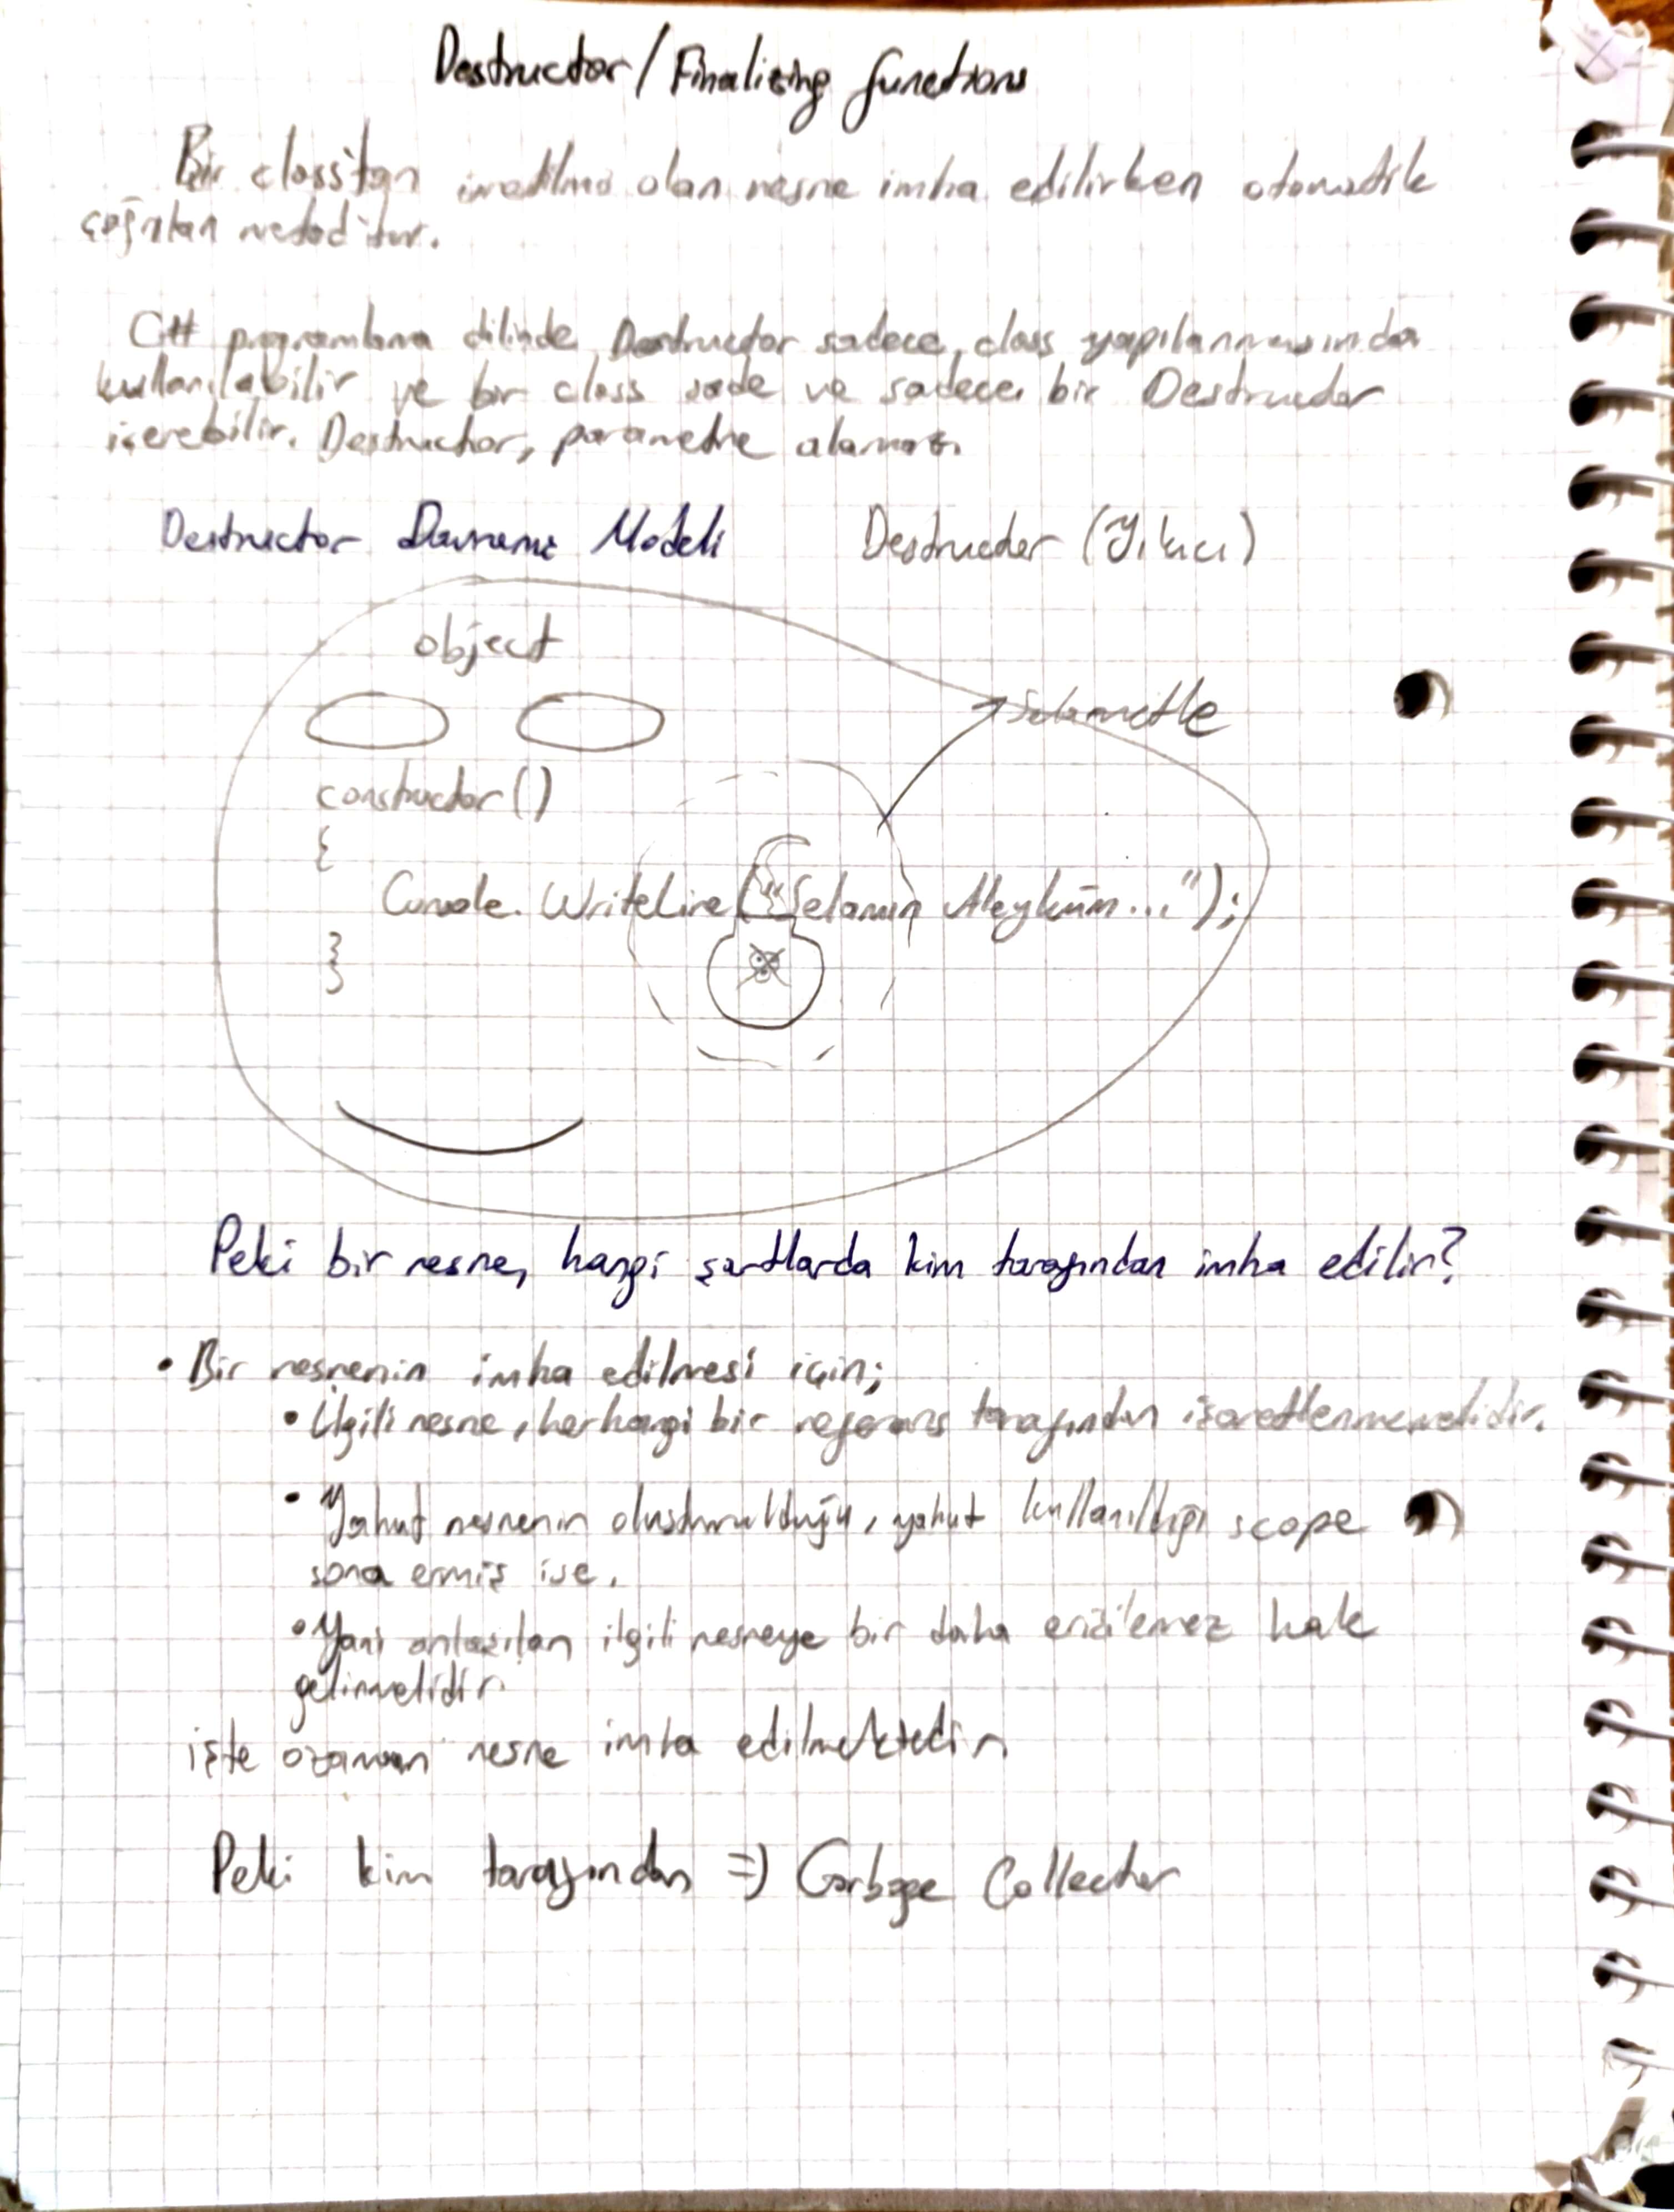 Destructor / Finalizing functions
Bir class'tan üretilmiş olan nesne imha edilirken otomatik
çağrılan metoddur.
C# programlama dilinde, Destructor sadece, class yapılanmasında
kullanılabilir ve bir class sade ve sadece bir Destructor
içerebilir. Destructor, parametre alamaz.
Destructor Davranış Modeli Destructor (Yıkıcı)
object
Selametle
constructor()
{
Console.WriteLine("Selamın Aleyküm...");
}
Peki bir nesne, hangi şartlarda kim tarafından imha edilir?
• Bir nesnenin imha edilmesi için;
• İlgili nesne, herhangi bir referans tarafından işaretlenmemelidir.
• Yahut nesnenin oluşturulduğu, yahut kullanıldığı scope
sona ermiş ise.
• Yani anlaşılan ilgili nesneye bir daha erişilemez hale
gelinmelidir.
işte ozaman nesne imha edilmektedir.
Peki kim tarafından => Garbage Collector